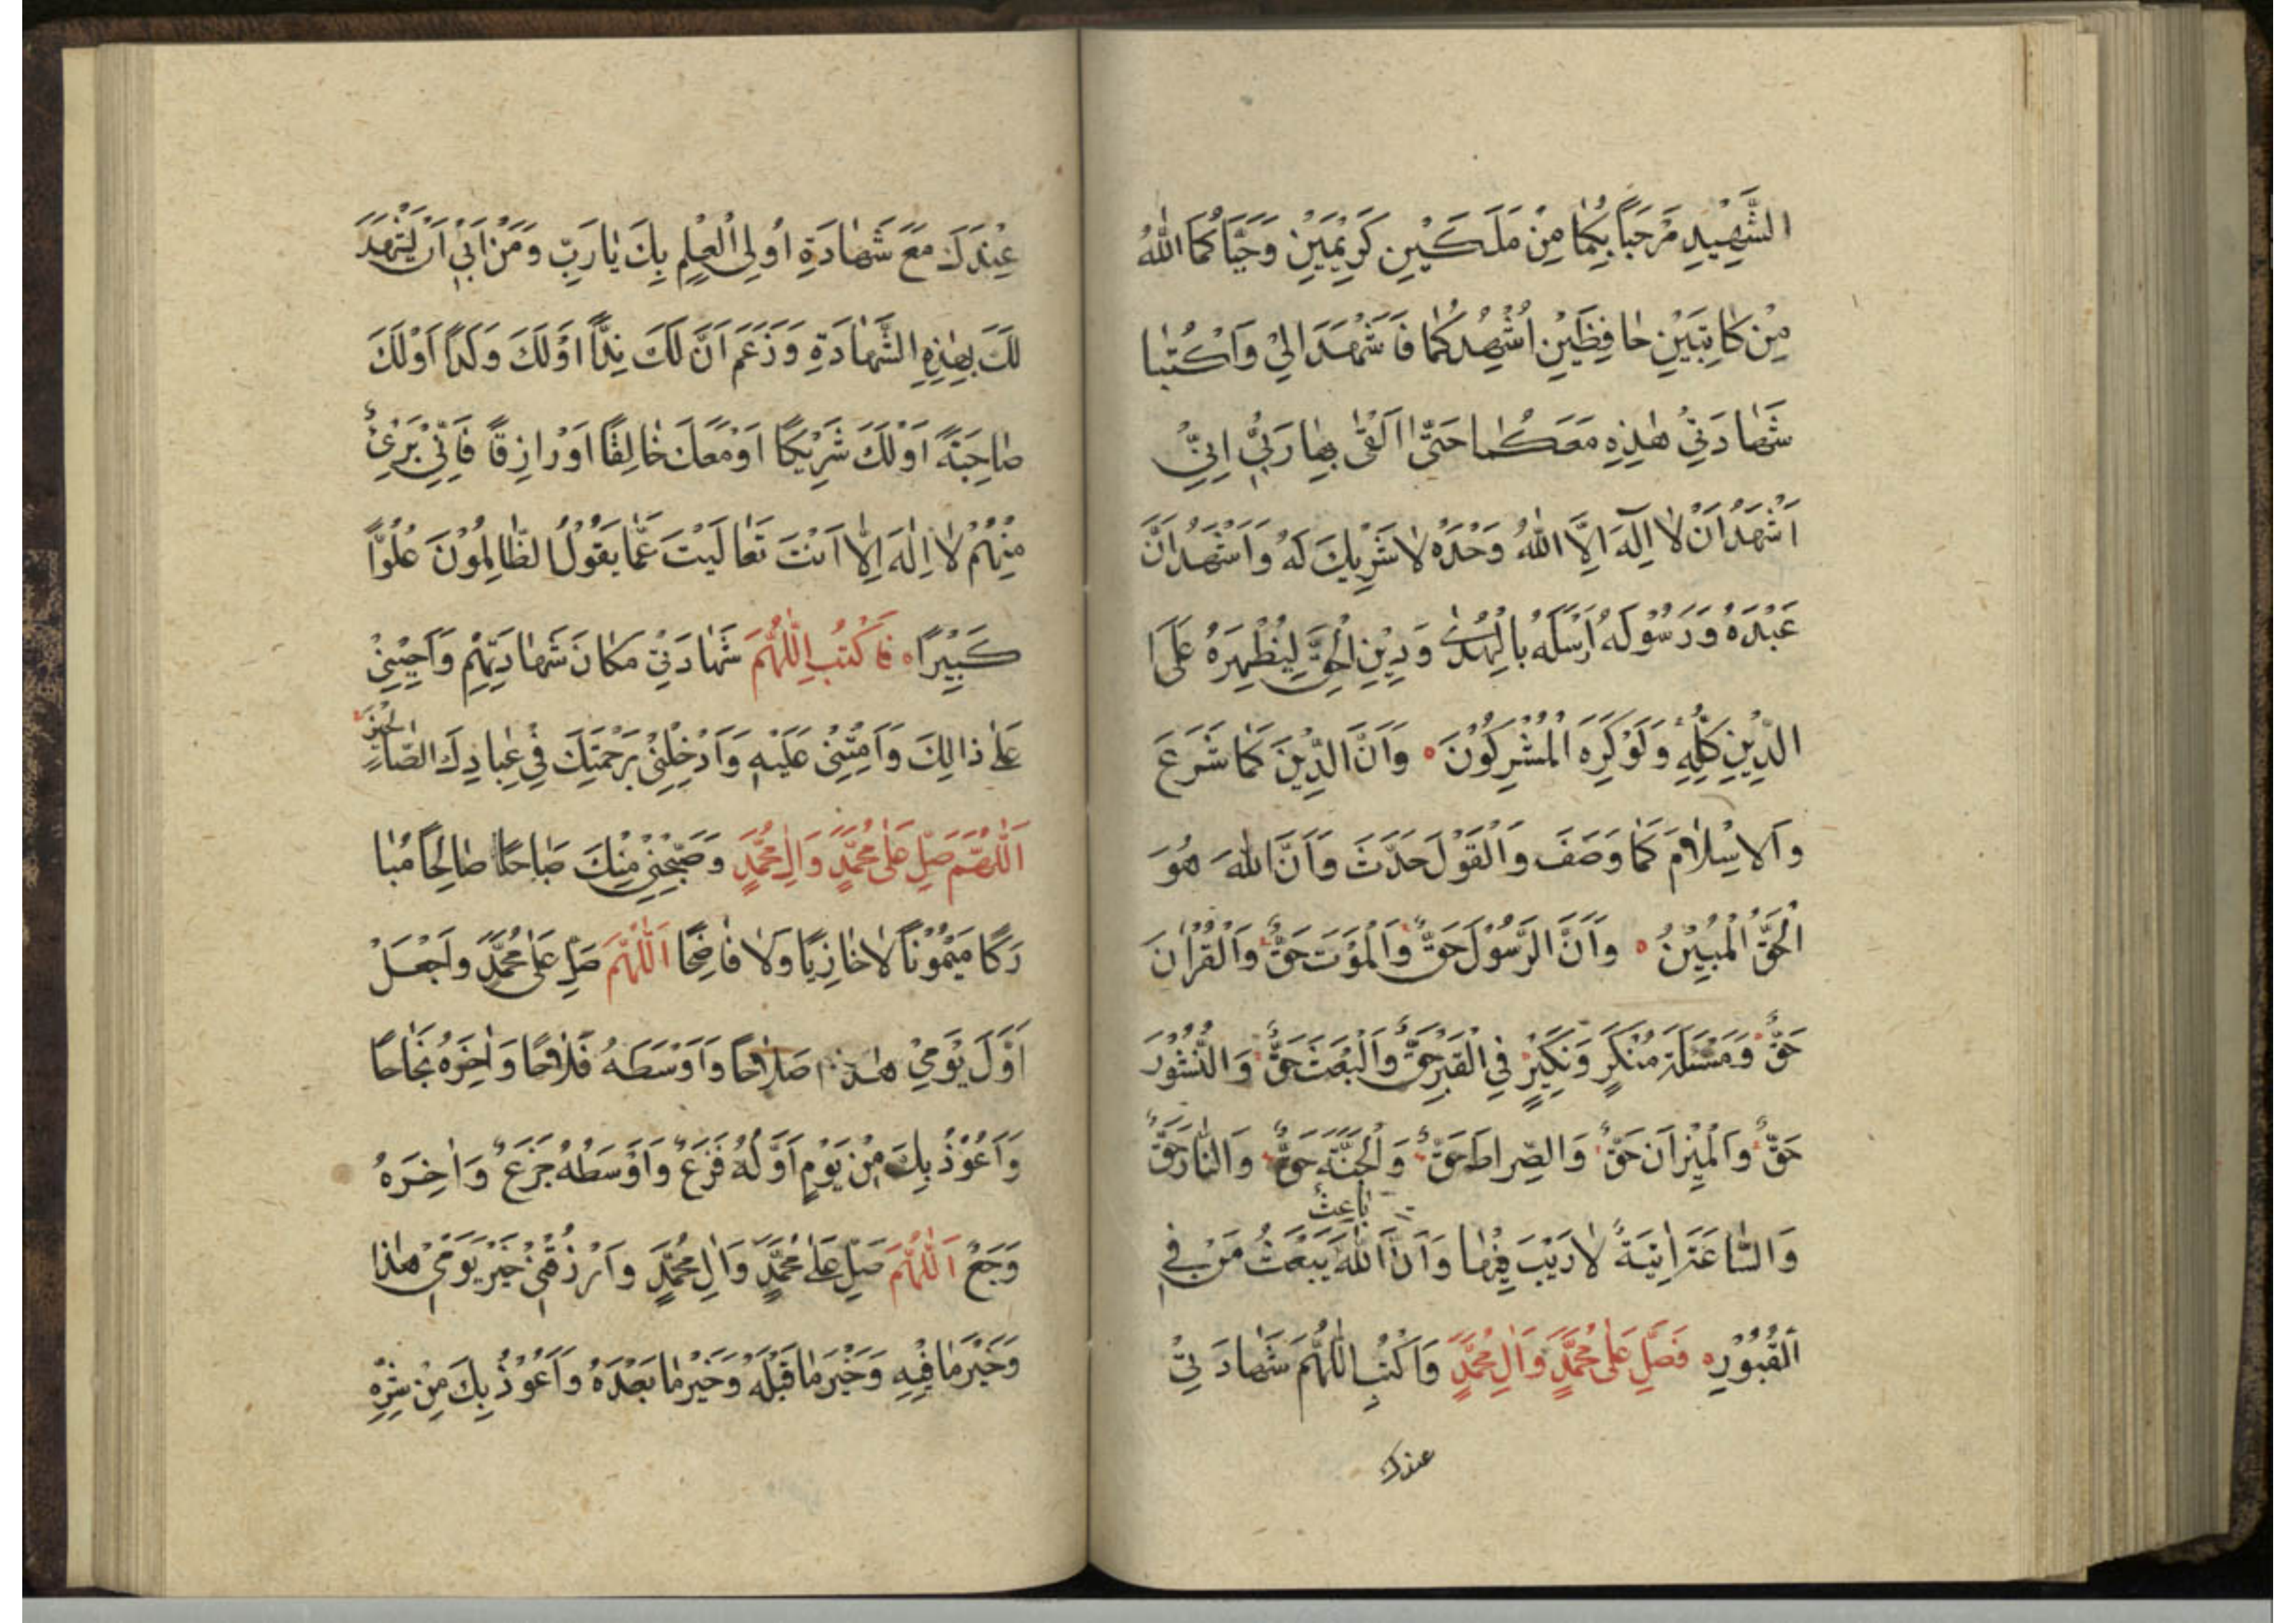 الشَّهِيْدِ مَرْحَبًا بِكُمٰا مِنْ مَلَكَيْنِ كَرِيْمَيْنِ وَحَيَّا كُمَا اللّٰهُ
مِنْ كٰاتِبَيْنِ حٰافِظَيْنِ اُشْهِدُ كُمٰا فَاشْهَدَا لِيْ وَاكْتُبٰا
شَهٰادَتِيْ هٰذِهِ مَعَكُمٰا حَتّٰى اَلْقٰى بِهٰا رَبِّيْ اِنِّيْ
اَشْهَدُ اَنْ لٰا اِلٰهَ اِلَّا اللّٰهُ وَحْدَهُ لٰا شَرِيْكَ لَهُ وَاَشْهَدُ اَنَّ
عَبْدَهُ وَرَسُوْلَهُ اَرْسَلَهُ بِالْهُدٰى وَدِيْنِ الْحَقِّ لِيُظْهِرَهُ عَلَى
الدِّيْنِ كُلِّهِ وَلَوْ كَرِهَ الْمُشْرِكُوْنَ وَاَنَّ الدِّيْنَ كَمٰا شَرَعَ
وَالْاِسْلٰامَ كَمٰا وَصَفَ وَالْقَوْلَ حَدَّثَ وَاَنَّ اللّٰهَ هُوَ
الْحَقُّ الْمُبِيْنُ وَاَنَّ الرَّسُوْلَ حَقٌّ وَالْمَوْتَ حَقٌّ وَالْقُرْاٰنَ
حَقٌّ وَمَسْئَلَةَ مُنْكَرٍ وَنَكِيْرٍ فِي الْقَبْرِ حَقٌّ وَالْبَعْثَ حَقٌّ وَالنُّشُوْرَ
حَقٌّ وَالْمِيْزَانَ حَقٌّ وَالصِّرٰاطَ حَقٌّ وَالْجَنَّةَ حَقٌّ وَالنّٰارَ حَقٌّ
بٰاعِثُ
وَالسّٰاعَةَ اٰتِيَةٌ لٰا رَيْبَ فِيْهٰا وَاَنَّ اللّٰهَ يَبْعَثُ مَنْ فِي
الْقُبُوْرِ فَصَلِّ عَلٰى مُحَمَّدٍ وَاٰلِ مُحَمَّدٍ وَاكْتُبِ اللّٰهُمَّ شَهٰادَتِيْ
عندك
عِنْدَكَ مَعَ شَهٰادَةِ اُولِى الْعِلْمِ بِكَ يٰا رَبِّ وَمَنْ اَبٰى اَنْ يَشْهَدَ
لَكَ بِهٰذِهِ الشَّهٰادَةِ وَزَعَمَ اَنَّ لَكَ نِدًّا اَوْ لَكَ وَلَدًا اَوْ لَكَ
صٰاحِبَةً اَوْ لَكَ شَرِيْكًا اَوْ مَعَكَ خٰالِقًا اَوْ رٰازِقًا فَاِنِّيْ بَرِيْءٌ
مِنْهُمْ لٰا اِلٰهَ اِلّٰا اَنْتَ تَعٰالَيْتَ عَمّٰا يَقُوْلُ الظّٰالِمُوْنَ عُلُوًّا
كَبِيْرًا فَاكْتُبِ اللّٰهُمَّ شَهٰادَتِيْ مَكٰانَ شَهٰادَتِهِمْ وَاَحْيِنِيْ
عَلٰى ذٰالِكَ وَاَمِتْنِيْ عَلَيْهِ وَاَدْخِلْنِيْ بِرَحْمَتِكَ فِيْ عِبٰادِكَ الصّٰالِحِيْنَ
اَللّٰهُمَّ صَلِّ عَلٰى مُحَمَّدٍ وَاٰلِ مُحَمَّدٍ وَصَبِّحْنِيْ مِنْكَ صَبٰاحًا صٰالِحًا مُبٰا
رَكًا مَيْمُوْنًا لٰا خٰازِيًا وَلٰا فٰاضِحًا اَللّٰهُمَّ صَلِّ عَلٰى مُحَمَّدٍ وَاجْعَلْ
اَوَّلَ يَوْمِيْ هٰذَا صَلٰاحًا وَاَوْسَطَهُ فَلٰاحًا وَاٰخِرَهُ نَجٰاحًا
وَاَعُوْذُ بِكَ مِنْ يَوْمٍ اَوَّلُهُ فَزَعٌ وَاَوْسَطُهُ جَزَعٌ وَاٰخِرَهُ
وَجَعٌ اَللّٰهُمَّ صَلِّ عَلٰى مُحَمَّدٍ وَاٰلِ مُحَمَّدٍ وَارْزُقْنِيْ خَيْرَ يَوْمِيْ هٰذٰا
وَخَيْرَ مٰا فِيْهِ وَخَيْرَ مٰا قَبْلَهُ وَخَيْرَ مٰا بَعْدَهُ وَاَعُوْذُ بِكَ مِنْ شَرِّهِ